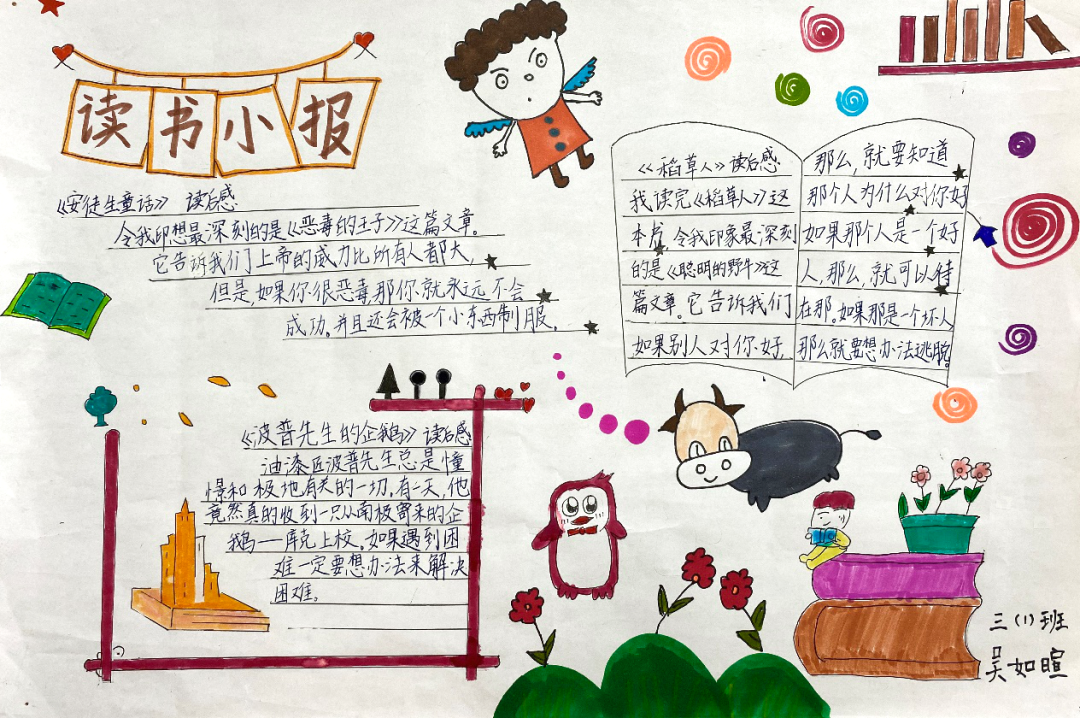 读书小报
《安徒生童话》 读后感
令我印想最深刻的是《恶毒的王子》这篇文章。
它告诉我们上帝的威力比所有人都大,
但是,如果你很恶毒那你就永远不会
成功。并且还会被一个小东西制服。
《稻草人》读后感
我读完《稻草人》这
本书 令我印象最深刻
的是《聪明的野牛》这
篇文章。它告诉我们
如果别人对你好,
那么,就要知道
那个人为什么对你好
如果那个人是一个好
人,那么,就可以待
在那。如果那是一个坏人
那么就要想办法逃脱。
《波普先生的企鹅》读后感
油漆匠波普先生总是憧
憬和极地有关的一切。有一天,他
竟然真的收到一只从南极寄来的企
鹅——库克上校。如果遇到困
难一定要想办法来解决
困难。
三(1)班
吴如暄